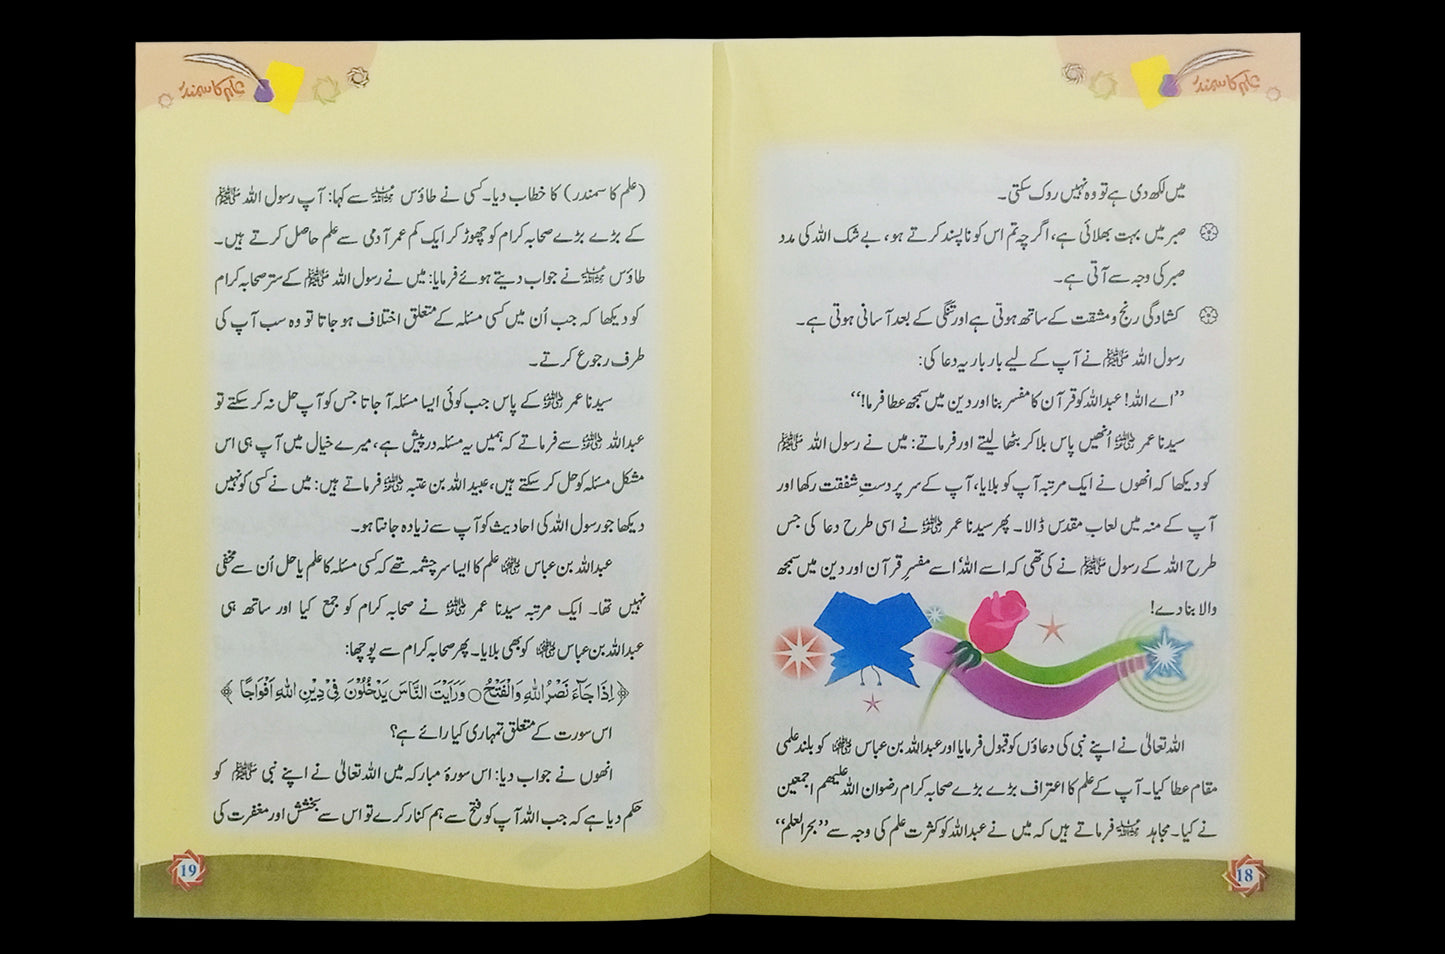 علم کا سمندر
میں لکھ دی ہے تو وہ نہیں روک سکتی۔
صبر میں بہت بھلائی ہے، اگر چہ تم اس کو ناپسند کرتے ہو، بے شک اللہ کی مدد
صبر کی وجہ سے آتی ہے۔
کشادگی رنج و مشقت کے ساتھ ہوتی ہے اور تنگی کے بعد آسانی ہوتی ہے۔
رسول اللہ ﷺ نے آپ کے لیے بار بار یہ دعا کی:
’’اے اللہ! عبداللہ کو قرآن کا مفسر بنا اور دین میں سمجھ عطا فرما!‘‘
سیدنا عمر رضی اللہ عنہ اُنھیں پاس بلا کر بٹھا لیتے اور فرماتے: میں نے رسول اللہ ﷺ
کو دیکھا کہ انھوں نے ایک مرتبہ آپ کو بلایا، آپ کے سر پر دستِ شفقت رکھا اور
آپ کے منہ میں لعاب مقدس ڈالا۔ پھر سیدنا عمر رضی اللہ عنہ نے اسی طرح دعا کی جس
طرح اللہ کے رسول ﷺ نے کی تھی کہ اے اللہ! اسے مفسرِ قرآن اور دین میں سمجھ
والا بنا دے!
اللہ تعالیٰ نے اپنے نبی کی دعاؤں کو قبول فرمایا اور عبداللہ بن عباس رضی اللہ عنہما کو بلند علمی
مقام عطا کیا۔ آپ کے علم کا اعتراف بڑے بڑے صحابہ کرام رضوان اللہ علیھم اجمعین
نے کیا۔ مجاہد رحمہ اللہ فرماتے ہیں کہ میں نے عبداللہ کو کثرت علم کی وجہ سے ’’بحر العلم‘‘
18
علم کا سمندر
(علم کا سمندر) کا خطاب دیا۔ کسی نے طاؤس رحمہ اللہ سے کہا: آپ رسول اللہ ﷺ
کے بڑے بڑے صحابہ کرام کو چھوڑ کر ایک کم عمر آدمی سے علم حاصل کرتے ہیں۔
طاؤس رحمہ اللہ نے جواب دیتے ہوئے فرمایا: میں نے رسول اللہ ﷺ کے ستر صحابہ کرام
کو دیکھا کہ جب اُن میں کسی مسئلہ کے متعلق اختلاف ہو جاتا تو وہ سب آپ کی
طرف رجوع کرتے۔
سیدنا عمر رضی اللہ عنہ کے پاس جب کوئی ایسا مسئلہ آ جاتا جس کو آپ حل نہ کر سکتے تو
عبداللہ رضی اللہ عنہ سے فرماتے کہ ہمیں یہ مسئلہ درپیش ہے، میرے خیال میں آپ ہی اس
مشکل مسئلہ کو حل کر سکتے ہیں، عبید اللہ بن عتبہ رضی اللہ عنہ فرماتے ہیں: میں نے کسی کو نہیں
دیکھا جو رسول اللہ کی احادیث کو آپ سے زیادہ جانتا ہو۔
عبداللہ بن عباس رضی اللہ عنہما علم کا ایسا سر چشمہ تھے کہ کسی مسئلہ کا علم یا حل اُن سے مخفی
نہیں تھا۔ ایک مرتبہ سیدنا عمر رضی اللہ عنہ نے صحابہ کرام کو جمع کیا اور ساتھ ہی
عبداللہ بن عباس رضی اللہ عنہما کو بھی بلایا۔ پھر صحابہ کرام سے پوچھا:
﴿ اِذَا جَآءَ نَصْرُ اللّٰهِ وَالْفَتْحُ ۝ وَرَاَيْتَ النَّاسَ يَدْخُلُوْنَ فِيْ دِيْنِ اللّٰهِ اَفْوَاجًا ﴾
اس سورت کے متعلق تمہاری کیا رائے ہے؟
انھوں نے جواب دیا: اس سورۂ مبارکہ میں اللہ تعالیٰ نے اپنے نبی ﷺ کو
حکم دیا ہے کہ جب اللہ آپ کو فتح سے ہم کنار کرے تو اس سے بخشش اور مغفرت کی
19